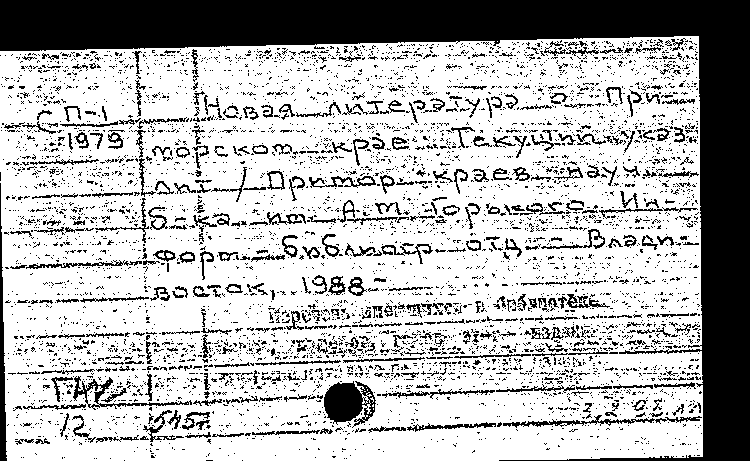 С П-1
1979
Новая литература о При-
морском крае: Текущий указ.
лит / Примор. краев. науч.
б-ка им. А.М. Горького. Ин-
форм.-библиогр. отд. - Влади-
восток, 1988 -
Перечень имеющихся в библиотеке
12 5457